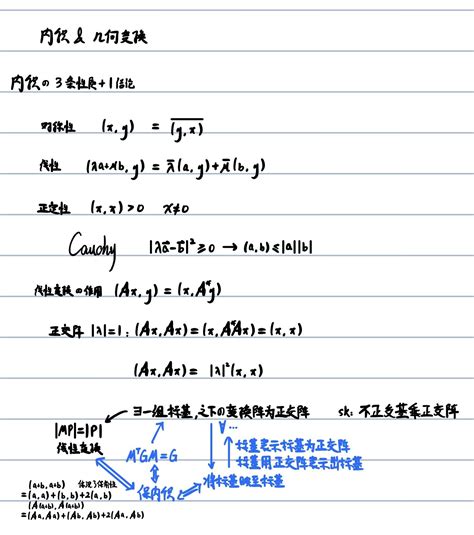 内积 & 几何变换
内积の3条性质+1结论
对称性 (x,y) = \overline{(y,x)}
线性 (λa+μb, y) = \overline{λ}(a,y)+\overline{μ}(b,y)
正定性 (x,x)>0 x≠0
Cauchy |λ\vec{a}-\vec{b}|²≥0 → (a,b)≤|a||b|
线性变换の作用 (Ax,y) = (x,Aᴴy)
正交阵 |λ|=1: (Ax,Ax)=(x,AᴴAx)=(x,x)
(Ax,Ax) = |λ|²(x,x)
∃一组标基,之下の变换阵为正交阵 sk: 不正交基乘正交阵
|MP|=|P| ∀...
线性变换 标基表示标基为正交阵
MᵀGM=G 标基用正交阵表示出标基
保内积 将标基映至标基
(a+b,a+b)
=(a,a)+(b,b)+2(a,b)
(A(a+b),A(a+b))
=(Aa,Aa)+(Ab,Ab)+2(Aa,Ab)